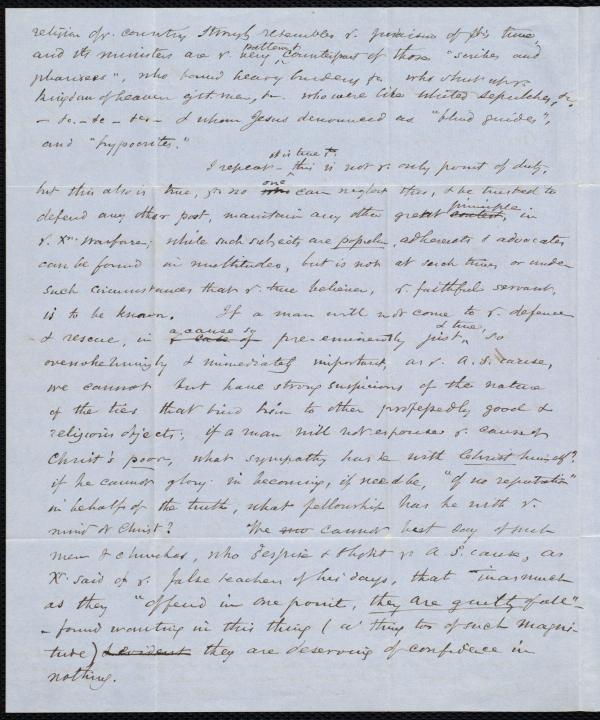 religion of ye. country strongly resembles ye. pharisees of His time,
and its ministers are ye. very patterns & counterpart of those "scribes and
pharisees", who bound heavy burdens &c. who shut up ye.
kingdom of heaven agst. men, &c. who were like whited sepulchres, &c,
- &c. - &c - &c - & whom Jesus denounced as "blind guides",
and "hypocrites."
I repeat - it is true yt. this is not ye. only point of duty,
but this also is true, yt. no one can neglect this, & be trusted to
defend any other post, maintain any other great principle, in
ye. Xn. warfare; while such subjects are popular, adherents & advocates
can be found in multitudes, but is not at such times or under
such circumstances that ye. true believer, ye. faithful servant,
is to be known. If a man will not come to ye. defence
& rescue, in a cause so pre-eminently just, & true, so
overwhelmingly & immediately important, as ye. A. S. cause,
we cannot but have strong suspicions of the nature
of the ties that bind him to other professedly good &
religious objects; if a man will not espouse ye. cause of
Christ's poor, what sympathy has he with Christ himself?
if he cannot glory in becoming, if need be, "of no reputation"
in behalf of the truth, what fellowship has he with ye.
mind of Christ? We cannot but say of such
men & churches, who despise & slight ye. A. S. cause, as
Xt. said of ye. false teachers of his days, that inasmuch
as they "offend in one point, they are guilty of all" -
- found wanting in this thing (a thing too of such magni-
tude) they are deserving of confidence in
nothing.